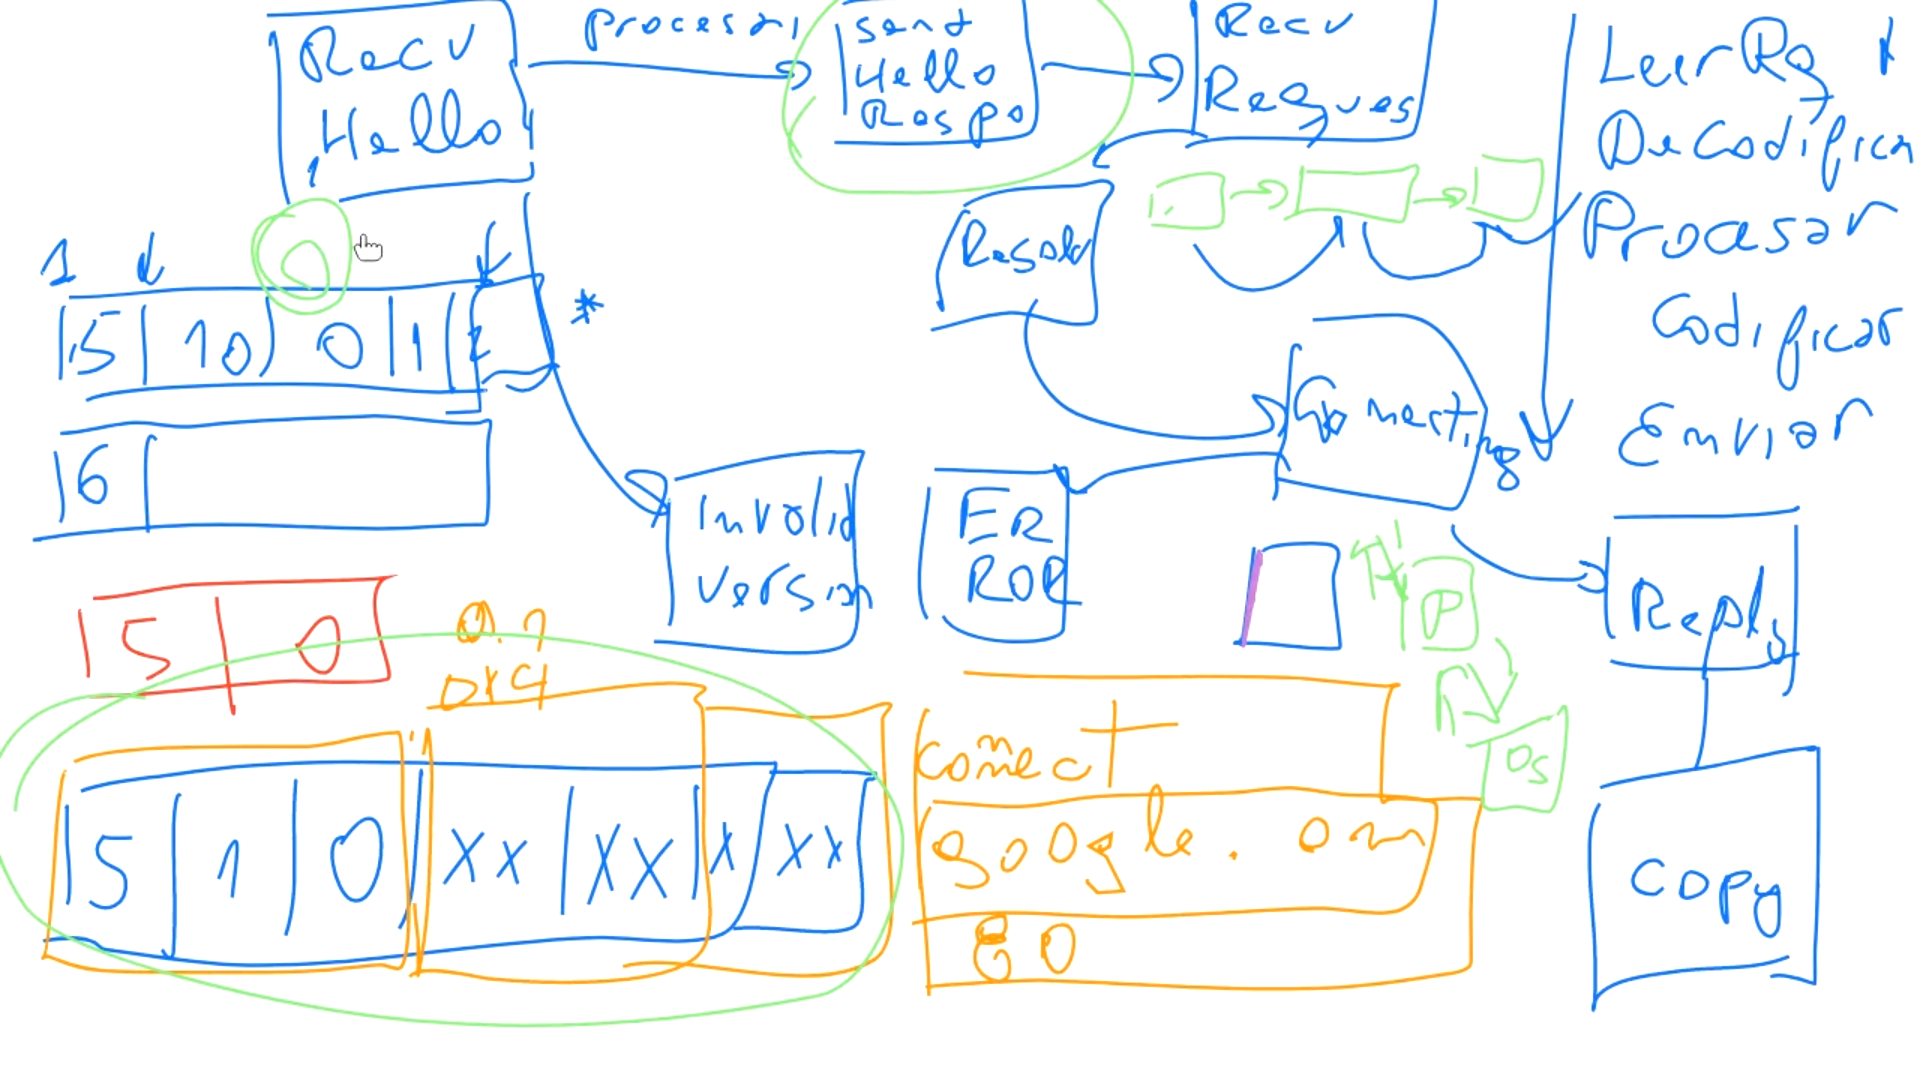 Recv
Hello
Procesar
send
Hello
Respo
Recv
Reques
Leer Rq
Decodificar
Procesar
Codificar
Enviar
Resolv
1
0
5 10 0 1
*
6
Connecting
Invalid
version
ER
ROR
P
OS
Reply
Copy
5 0
0x4
5 1 0 xx xx x xx
Connect
google.com
80